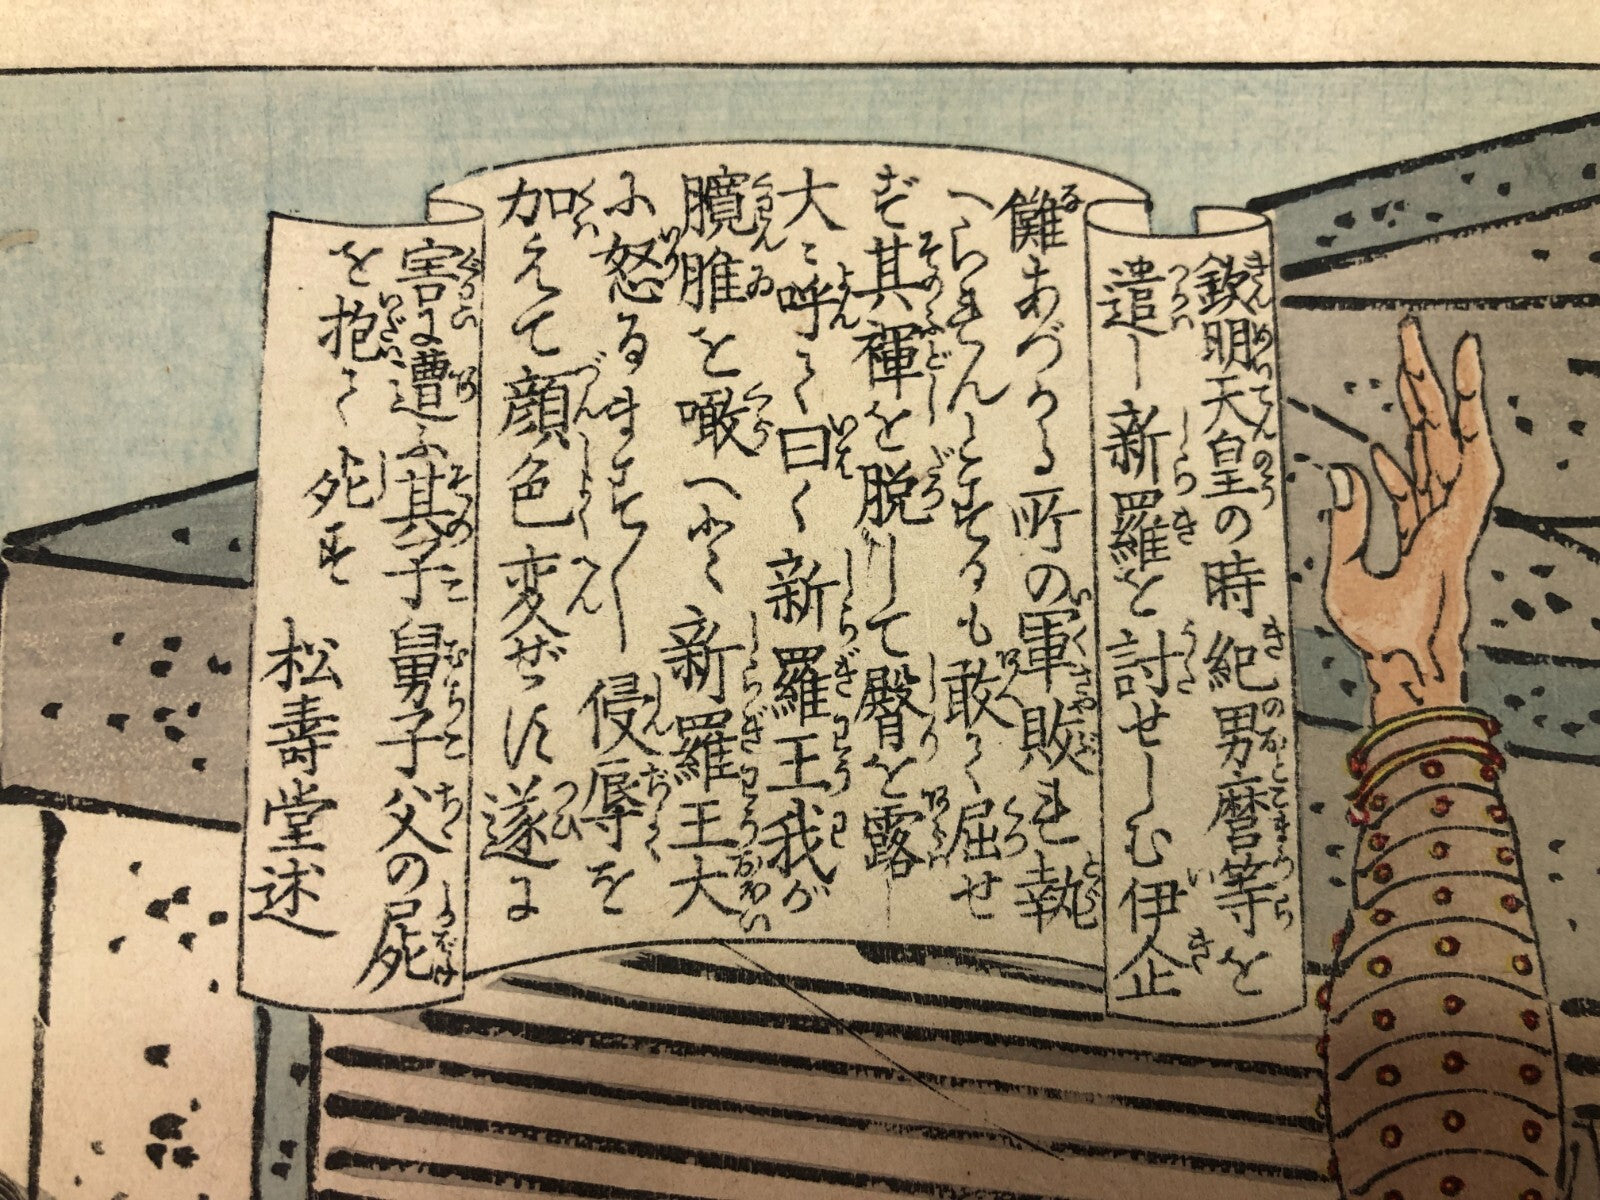 欽明天皇の時紀男麿等を
遣し新羅を討せしむ伊企
儺あづかる所の軍敗れ執
へられてんとするも敢て屈せ
ず其褌を脱して臀を露し
大に呼て曰く新羅王我が
臗脽を噉へと新羅王大
に怒るますます侵辱を
加えて顔色変ぜず遂に
害に遭ふ其子舅子父の屍
を抱て死す
松寿堂述